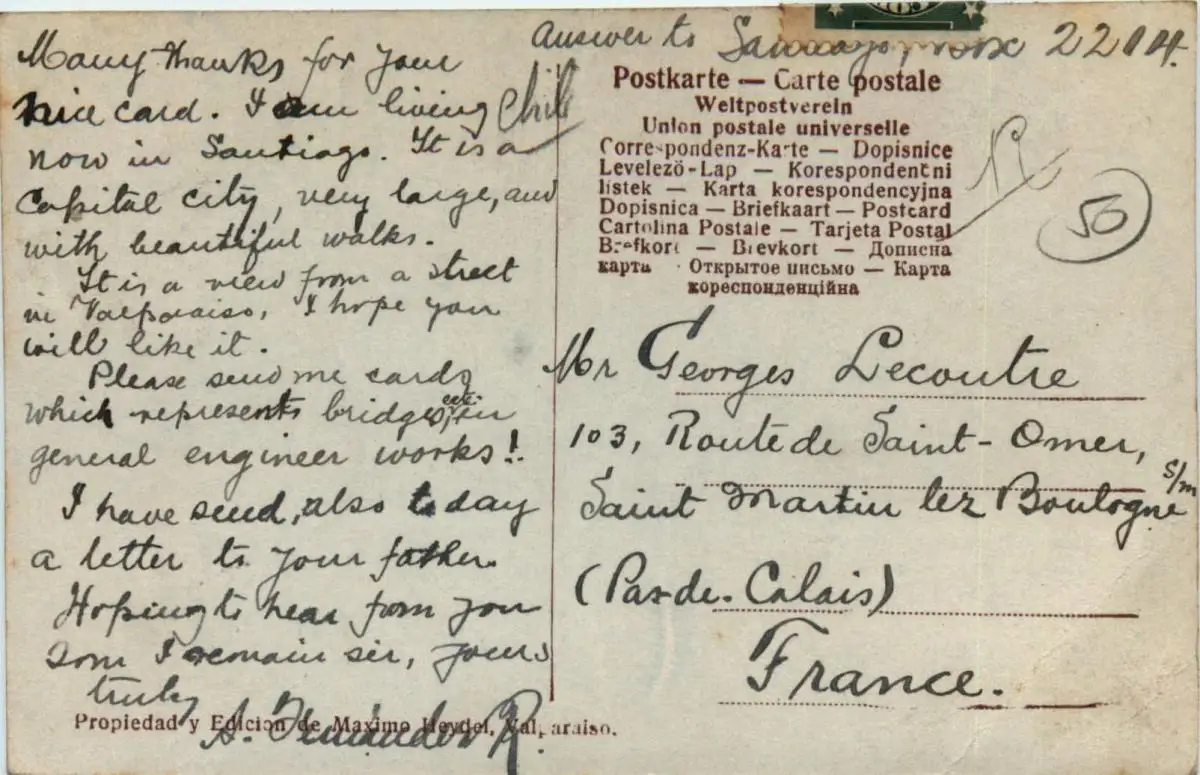 Answer to Santiago, Box 2204.
Chile
Many thanks for your
nice card. I am living
now in Santiago. It is a
Capital city, very large, and
with beautiful walks.
It is a view from a street
in Valparaiso, I hope you
will like it.
Please send me cards
which represents bridges, etc. in
general engineer works!
I have send, also to day
a letter to your father.
Hoping to hear form you
som I remain sir, yours
truly
A. Fernández R.
Propiedad y Edicion de Maximo Heydel, Valparaiso.
Postkarte — Carte postale
Weltpostverein
Union postale universelle
Correspondenz-Karte — Dopisnice
Levelező-Lap — Korespondenčni
listek — Karta korespondencyjna
Dopisnica — Briefkaart — Postcard
Cartolina Postale — Tarjeta Postal
Brefkort — Brevkort — Дописна
карта · Открытое письмо — Карта
кореспонденційна
50
Mr Georges Lecoutre
103, Route de Saint-Omer,
Saint Martin lez Boulogne s/m
(Pas-de-Calais)
France.